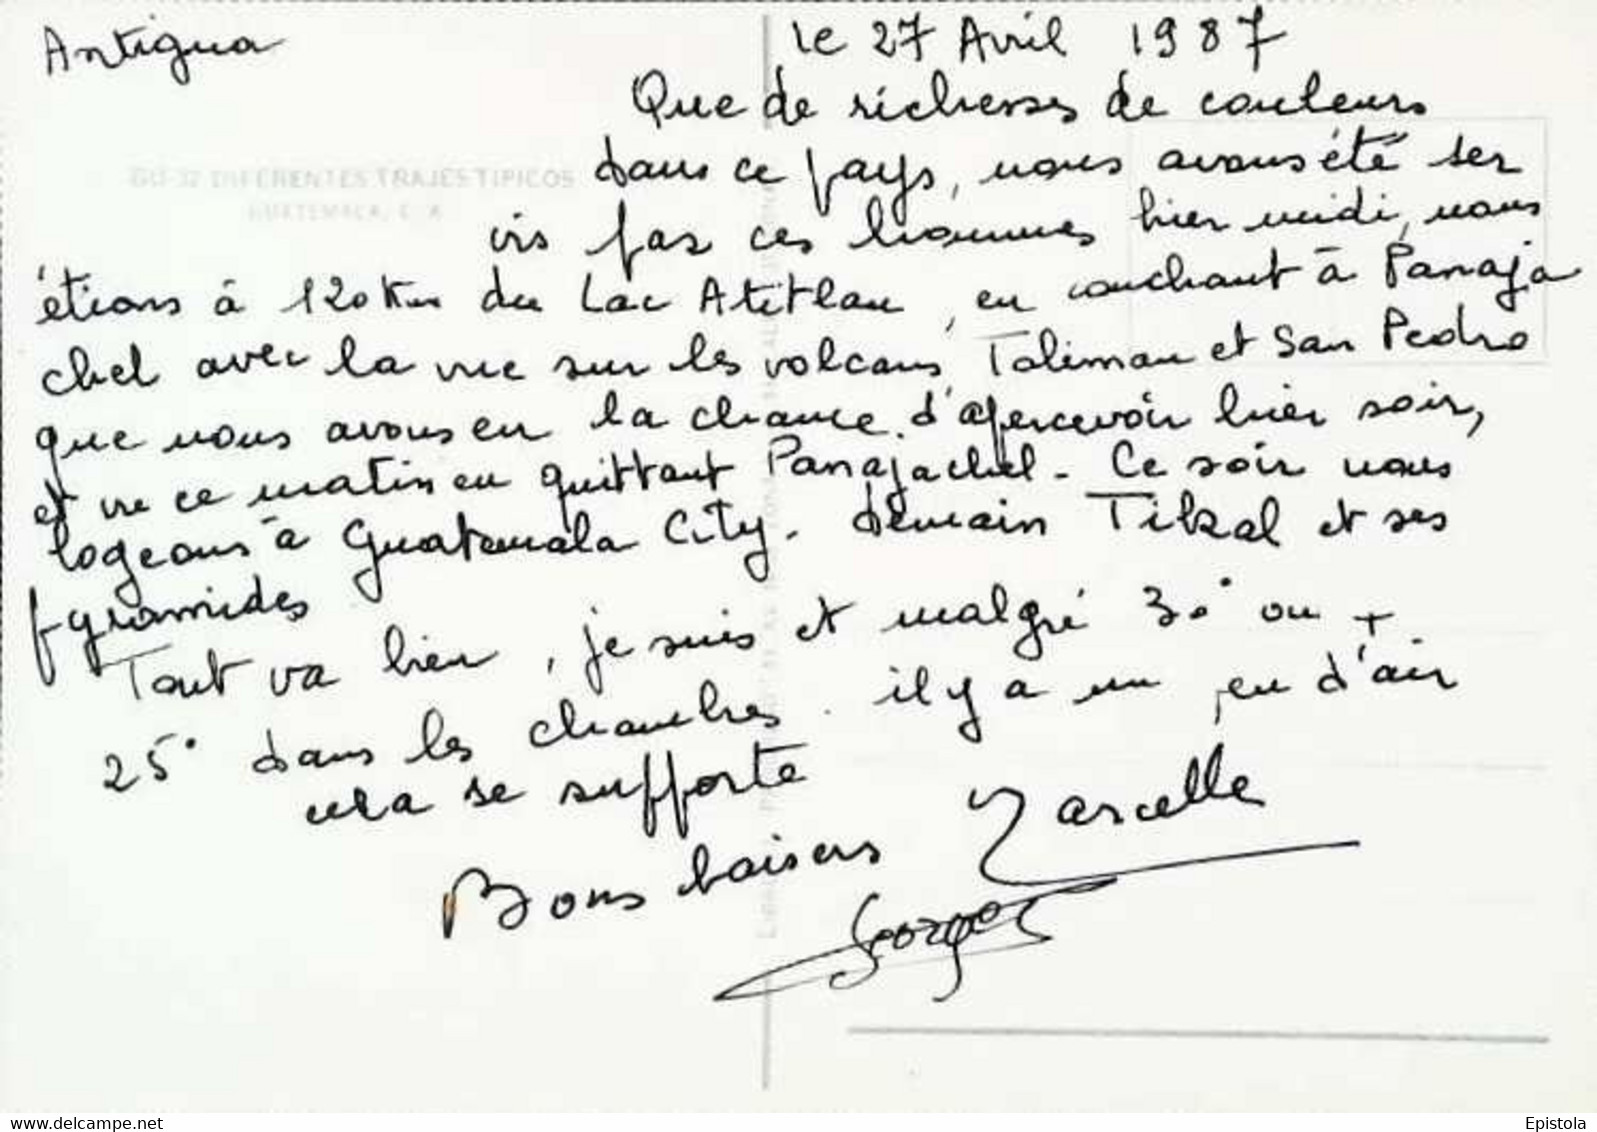 Antigua
le 27 Avril 1987
Que de richesses de couleurs
dans ce pays, nous avons été ser
vis par ces hommes hier midi, nous
étions à 120 Km du Lac Atitlan, en couchant à Panaja
chel avec la vue sur les volcans Toliman et San Pedro
que nous avons eu la chance d'apercevoir hier soir,
et vu ce matin en quittant Panajachel. Ce soir nous
logeons à Guatemala City. demain Tikal et ses
pyramides
Tout va bien, je suis et malgré 30° ou +
25° dans les chambres. il y a un peu d'air
cela se supporte
Bons baisers Marcelle
Georges
GU-32 DIFERENTES TRAJES TIPICOS
GUATEMALA, C. A.
Epistola